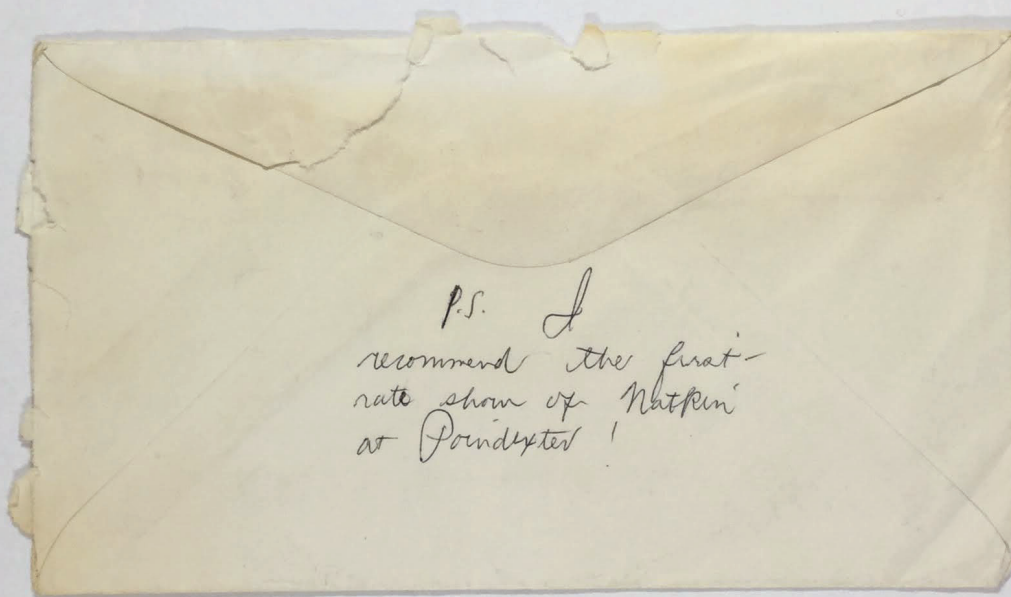 P.S. I
recommend the first-
rate show of Natkin
at Poindexter!